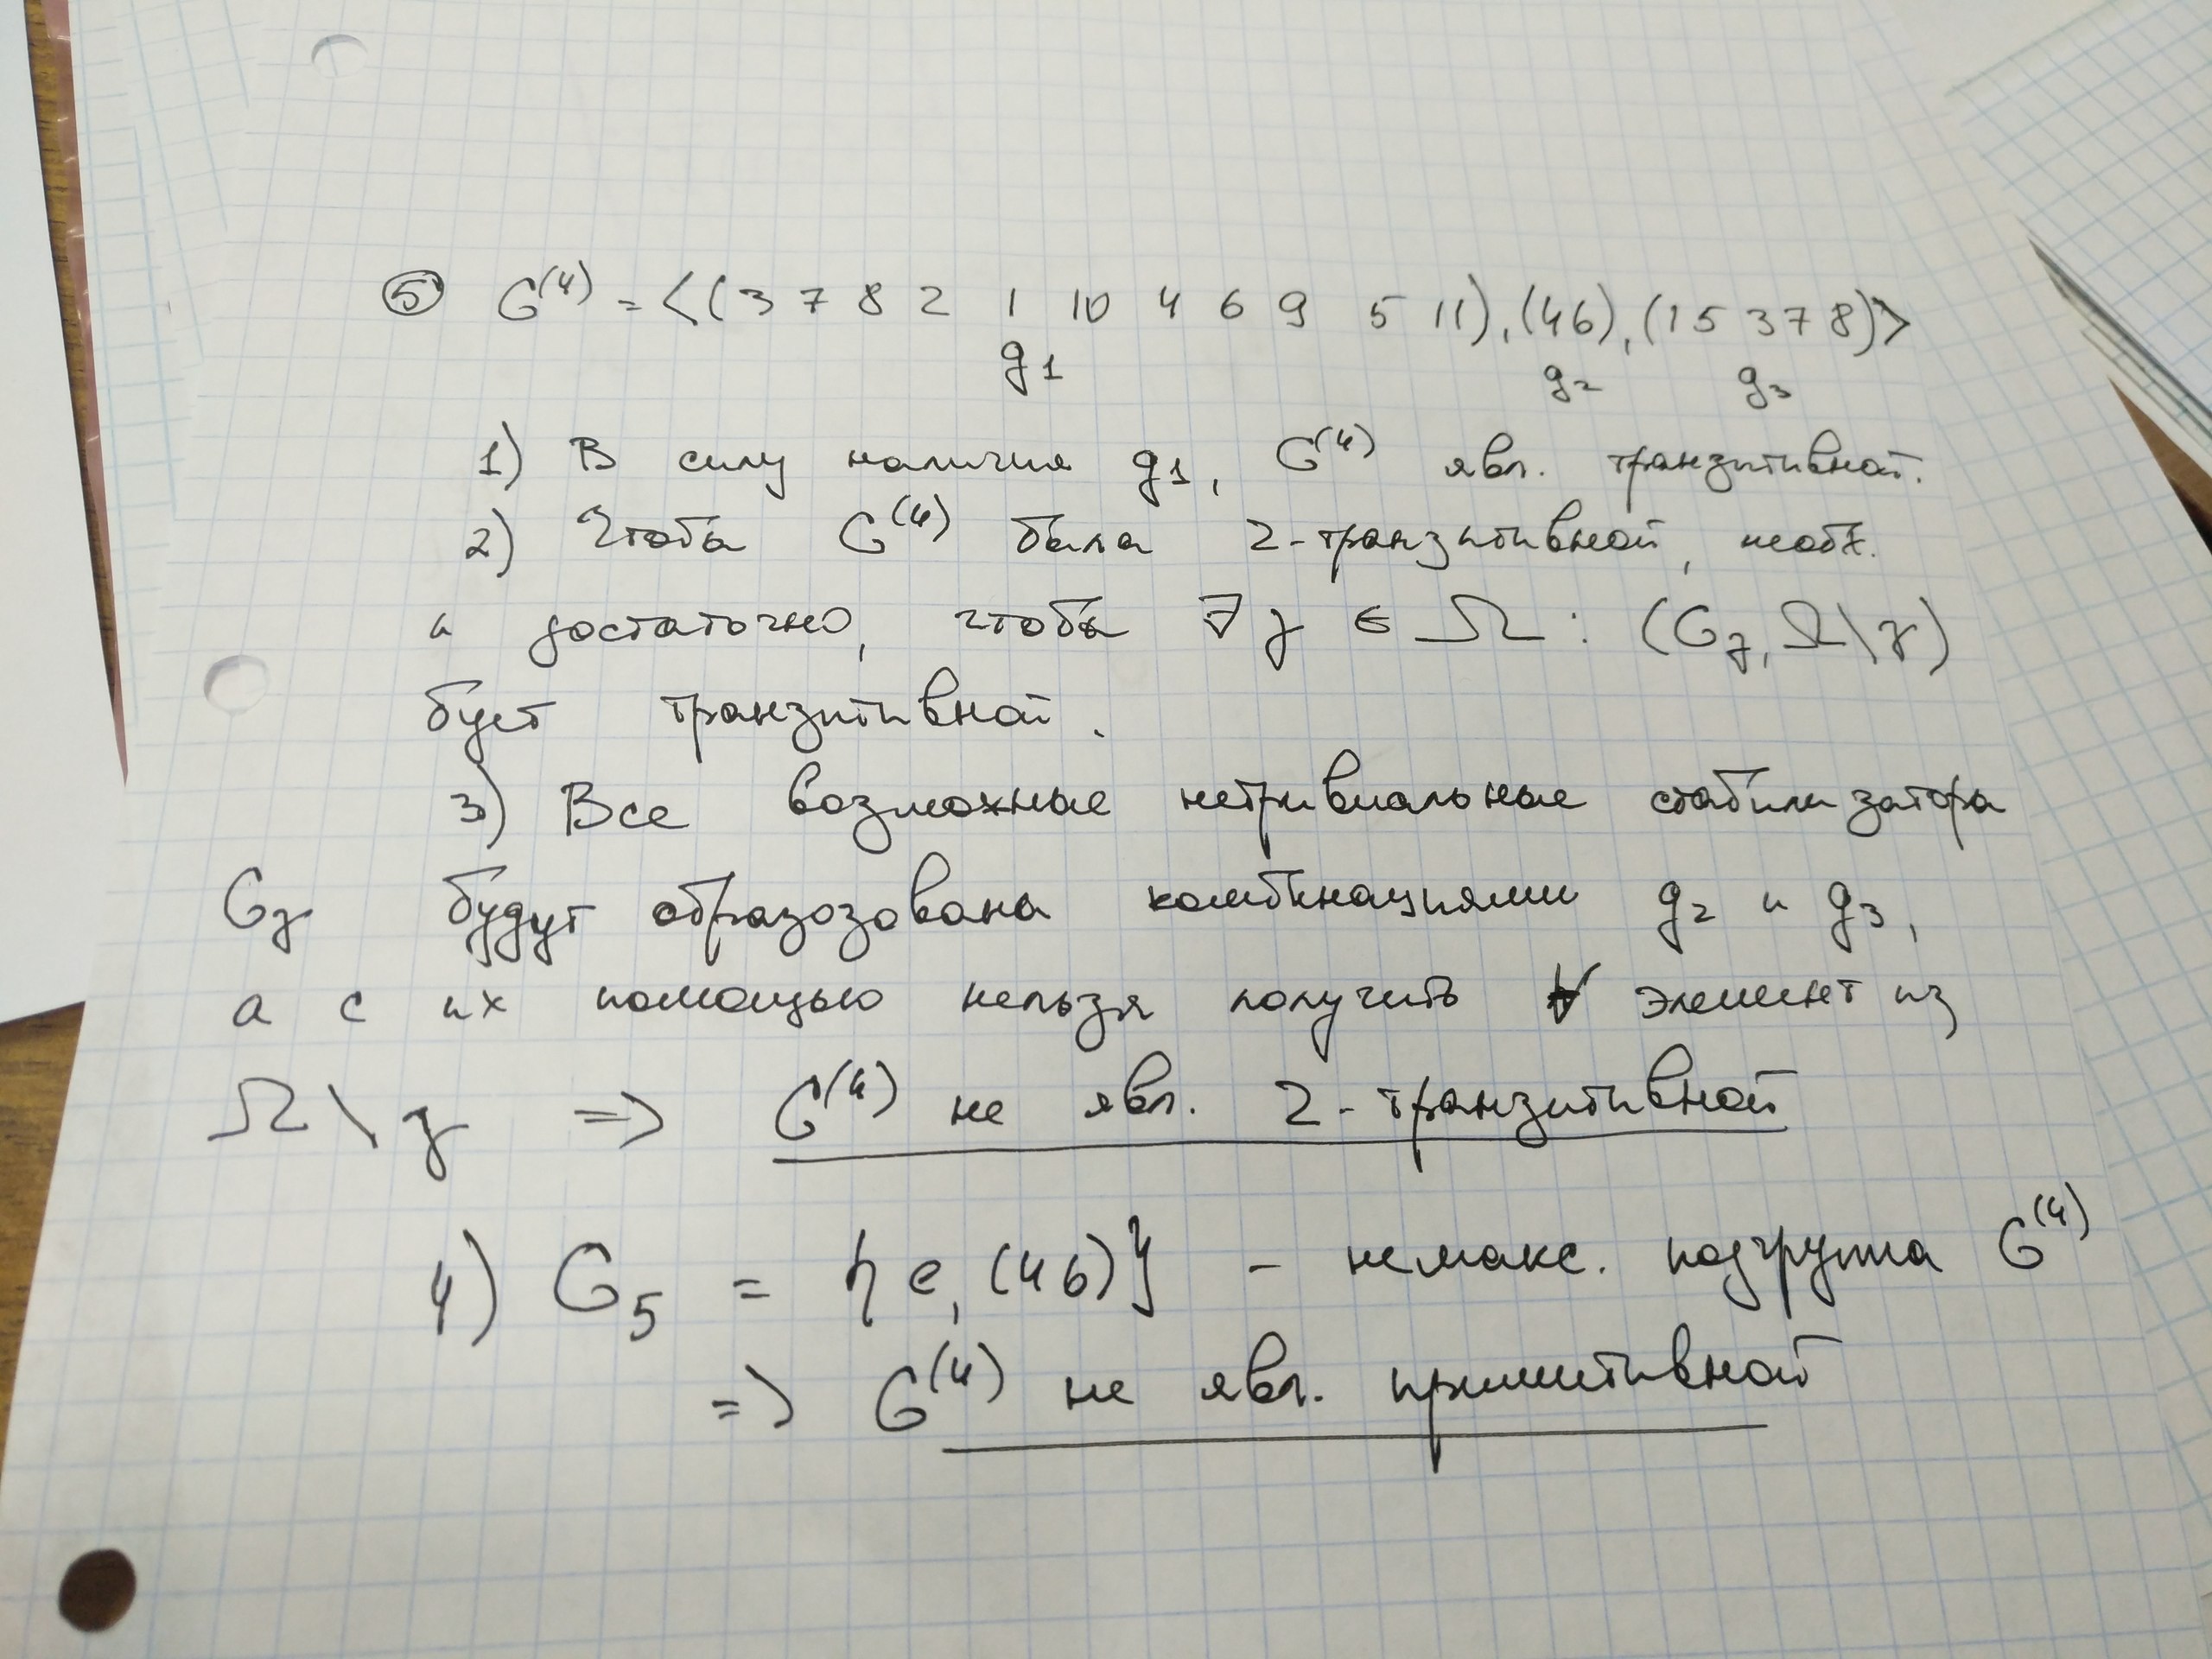 ⑤ G⁽⁴⁾ = <(3 7 8 2 1 10 4 6 9 5 11), (46), (15 378)>
g1 g2 g3
1) В силу наличия g1, G⁽⁴⁾ явл. транзитивной.
2) Чтобы G⁽⁴⁾ была 2-транзитивной, необх.
и достаточно, чтобы ∃ γ ∈ Ω : (Gγ, Ω\γ)
будет транзитивной.
3) Все возможные нетривиальные стабилизаторы
Gγ будут образозованы комбинациями g2 и g3,
а с их помощью нельзя получить ∀ элемент из
Ω \ γ => G⁽⁴⁾ не явл. 2-транзитивной
4) G5 = {e, (46)} - немакс. подгруппа G⁽⁴⁾
=> G⁽⁴⁾ не явл. примитивной